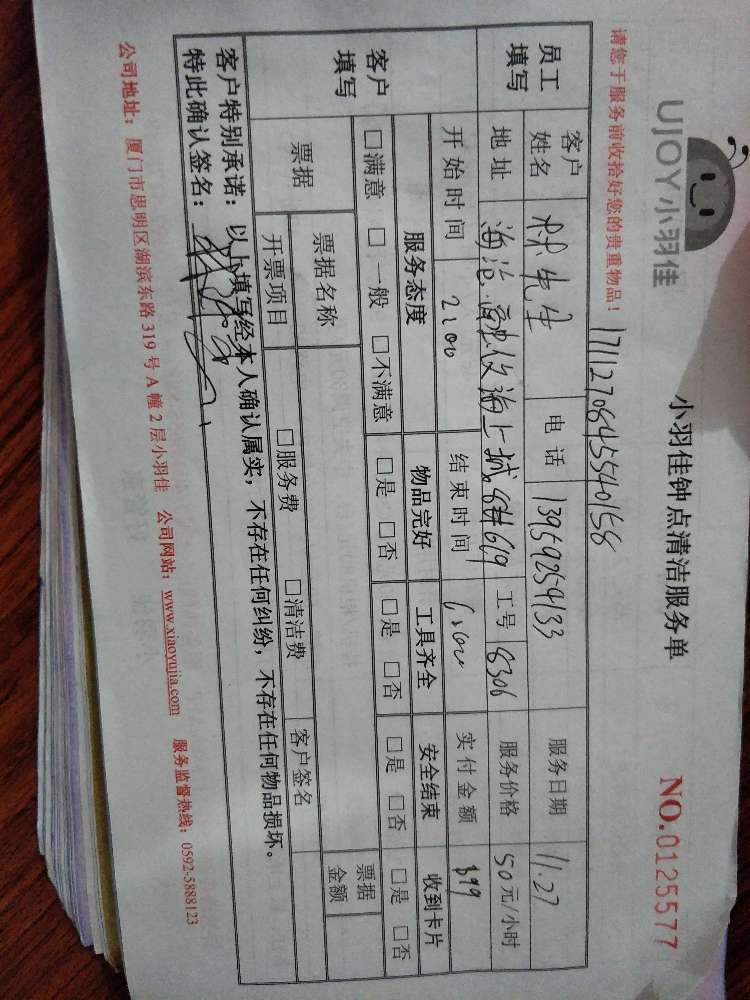 UJOY小羽佳
小羽佳钟点清洁服务单
NO.0125577
请您于服务前收拾好您的贵重物品！
17112708455540158
员工填写 客户姓名 林先生 电话 13959254133 服务日期 11.27
地址 海沧. 海上城8#619 工号 8306 服务价格 50元/小时
客户填写 开始时间 2:00 结束时间 6:00 实付金额 899
服务态度 物品完好 工具齐全 安全结束 收到卡片
□满意 □一般 □不满意 □是 □否 □是 □否 □是 □否 □是 □否
票据 票据名称 票据金额
开票项目 □服务费 □清洁费 客户签名
客户特别承诺：以上填写经本人确认属实，不存在任何纠纷，不存在任何物品损坏。
特此确认签名：
公司地址：厦门市思明区湖滨东路319号A幢2层小羽佳 公司网站：www.xiaoyujia.com 服务监督热线：0592-5888123